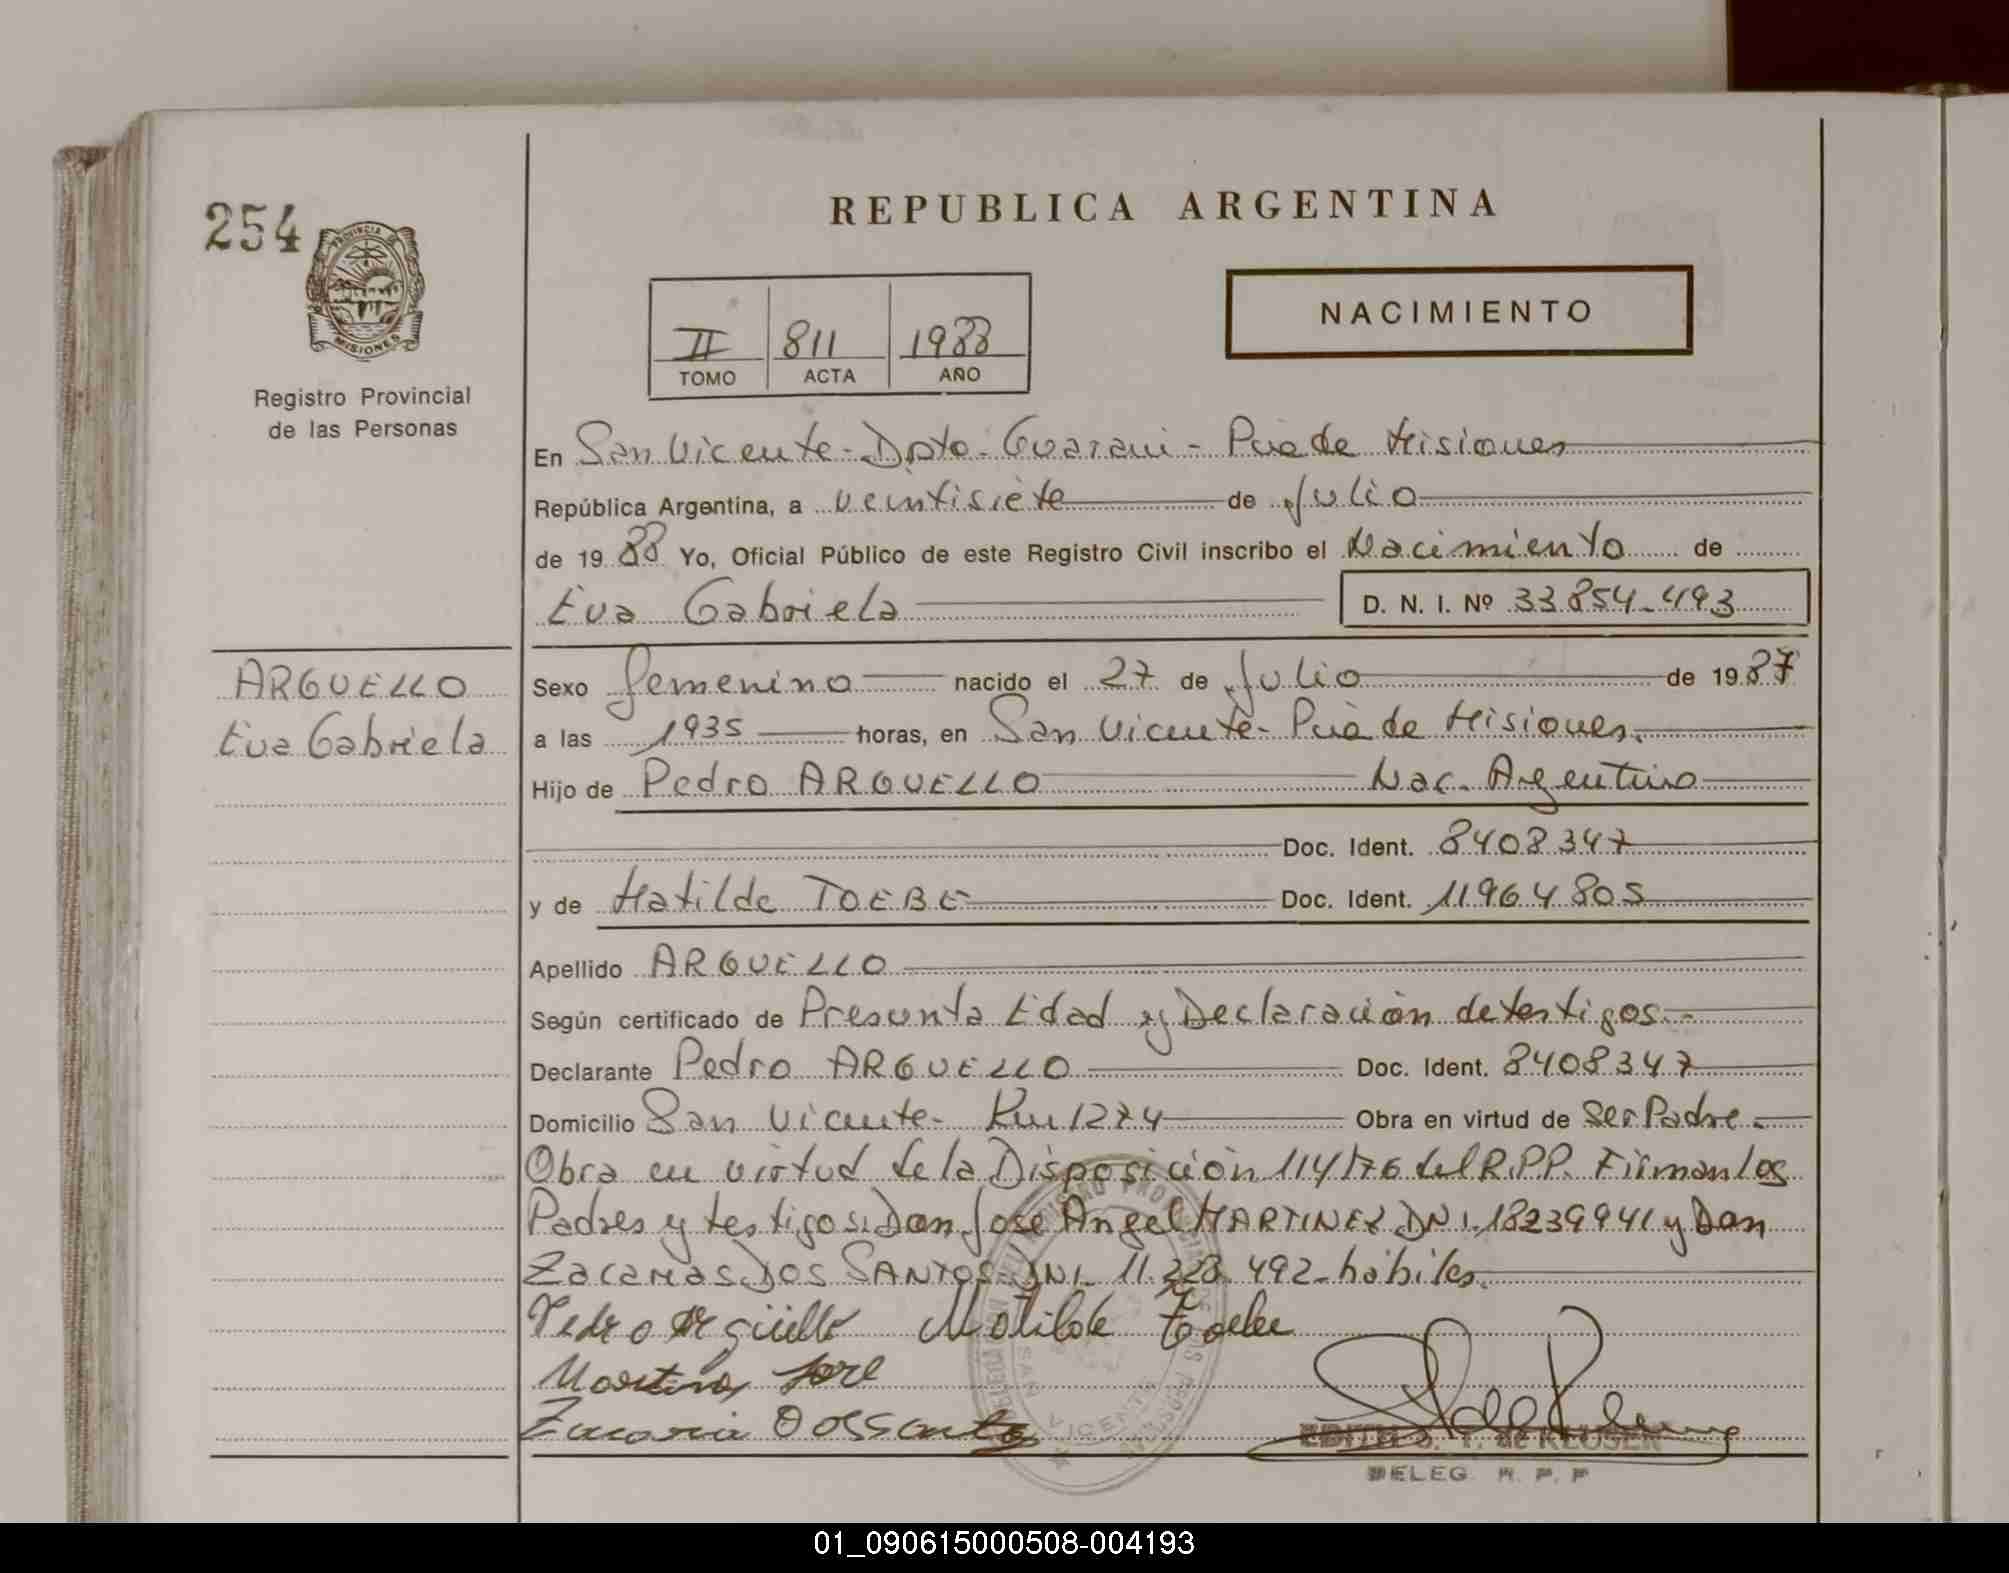 REPUBLICA ARGENTINA
254
PROVINCIA DE
MISIONES
Registro Provincial
de las Personas
II 811 1988
TOMO ACTA AÑO
NACIMIENTO
En San Vicente - Dpto. Guarani - Pcia de Misiones
República Argentina, a veintisiete de Julio
de 1988 Yo, Oficial Público de este Registro Civil inscribo el Nacimiento de
Eva Gabriela D. N. I. Nº 33.854.493
ARGUELLO
Eva Gabriela
Sexo femenino nacido el 27 de Julio de 1987
a las 1935 horas, en San Vicente - Pcia de Misiones.
Hijo de Pedro ARGUELLO Nac. Argentino
Doc. Ident. 8408347
y de Matilde TOEBE Doc. Ident. 11964805
Apellido ARGUELLO
Según certificado de Presunta Edad y Declaración de testigos.-
Declarante Pedro ARGUELLO Doc. Ident. 8408347
Domicilio San Vicente - Km 1274 Obra en virtud de Ser Padre.
Obra en virtud de la Disposición 114/76 del R.P.P. Firman los
Padres y testigos: Don Jose Angel MARTINEZ DNI. 18239941 y Don
Zacarias DOS SANTOS - DNI. 11.228.492 - hábiles.
Pedro Argüello Matilde Toebe
Martinez Jose
Zacaria Dossantos
VICENTE
EDITH S. T. de KLUSEN
DELEG. R. P. P
01_090615000508-004193